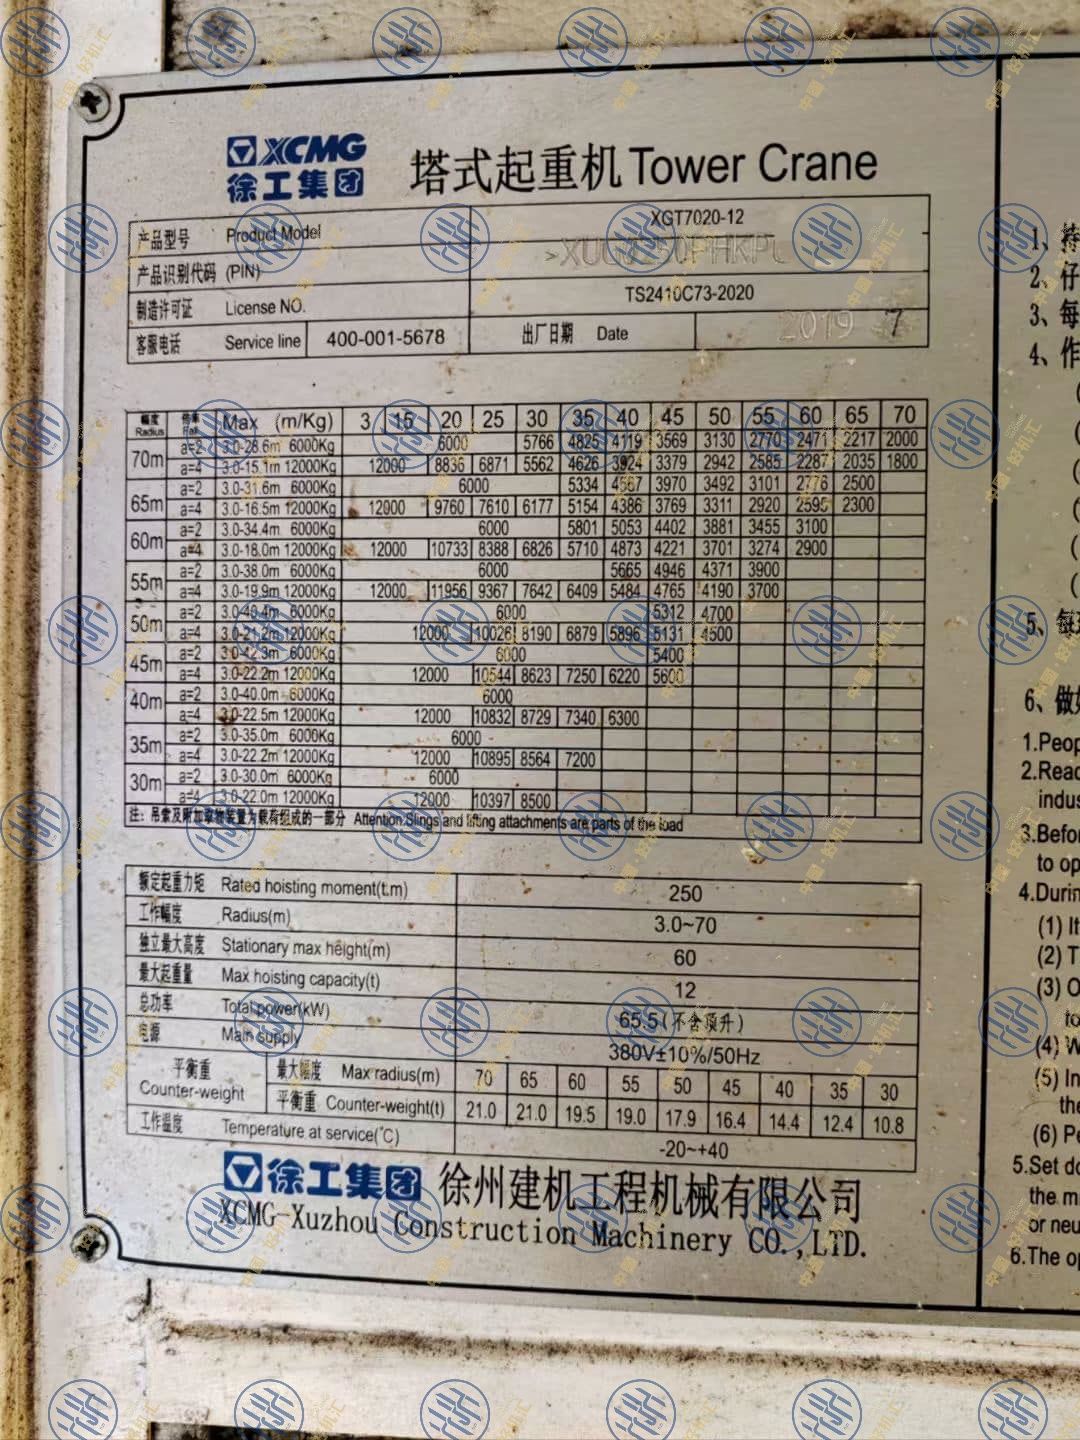 XCMG
徐工集团
塔式起重机 Tower Crane
产品型号 Product Model XGT7020-12
产品识别代码 (PIN)
制造许可证 License NO. TS2410C73-2020
客服电话 Service line 400-001-5678 出厂日期 Date 2019 7
幅度 Radius 倍率 Max (m/Kg) 3 15 20 25 30 35 40 45 50 55 60 65 70
70m a=2 3.0-28.6m 6000Kg 6000 5766 4825 4119 3569 3130 2770 2471 2217 2000
a=4 3.0-15.1m 12000Kg 12000 8836 6871 5562 4626 3924 3379 2942 2585 2287 2035 1800
65m a=2 3.0-31.6m 6000Kg 6000 5334 4567 3970 3492 3101 2776 2500
a=4 3.0-16.5m 12000Kg 12000 9760 7610 6177 5154 4386 3769 3311 2920 2595 2300
60m a=2 3.0-34.4m 6000Kg 6000 5801 5053 4402 3881 3455 3100
a=4 3.0-18.0m 12000Kg 12000 10733 8388 6826 5710 4873 4221 3701 3274 2900
55m a=2 3.0-38.0m 6000Kg 6000 5665 4946 4371 3900
a=4 3.0-19.9m 12000Kg 12000 11956 9367 7642 6409 5484 4765 4190 3700
50m a=2 3.0-40.4m 6000Kg 6000 5312 4700
a=4 3.0-21.2m 12000Kg 12000 10026 8190 6879 5896 5131 4500
45m a=2 3.0-42.3m 6000Kg 6000 5400
a=4 3.0-22.2m 12000Kg 12000 10544 8623 7250 6220 5600
40m a=2 3.0-40.0m 6000Kg 6000
a=4 3.0-22.5m 12000Kg 12000 10832 8729 7340 6300
35m a=2 3.0-35.0m 6000Kg 6000
a=4 3.0-22.2m 12000Kg 12000 10895 8564 7200
30m a=2 3.0-30.0m 6000Kg 6000
a=4 3.0-22.0m 12000Kg 12000 10397 8500
注: 吊索及附加取物装置为载荷组成的一部分 Attention:Slings and lifting attachments are parts of the load
额定起重力矩 Rated hoisting moment(t.m) 250
工作幅度 Radius(m) 3.0~70
独立最大高度 Stationary max height(m) 60
最大起重量 Max hoisting capacity(t) 12
总功率 Total power(kW) 65.5(不含顶升)
电源 Main supply 380V±10%/50Hz
平衡重 Counter-weight 最大幅度 Max radius(m) 70 65 60 55 50 45 40 35 30
平衡重 Counter-weight(t) 21.0 21.0 19.5 19.0 17.9 16.4 14.4 12.4 10.8
工作温度 Temperature at service(℃) -20~+40
徐工集团 徐州建机工程机械有限公司
XCMG-Xuzhou Construction Machinery CO.,LTD.
1、持
2、仔
3、每
4、作
5、每
6、做好
1.Peop
2.Read
indus
3.Befor
to op
4.Durin
(1) It
(2) T
(3) O
to
(4) W
(5) In
the
(6) Pe
5.Set do
the m
or neu
6.The op
中国·好机汇